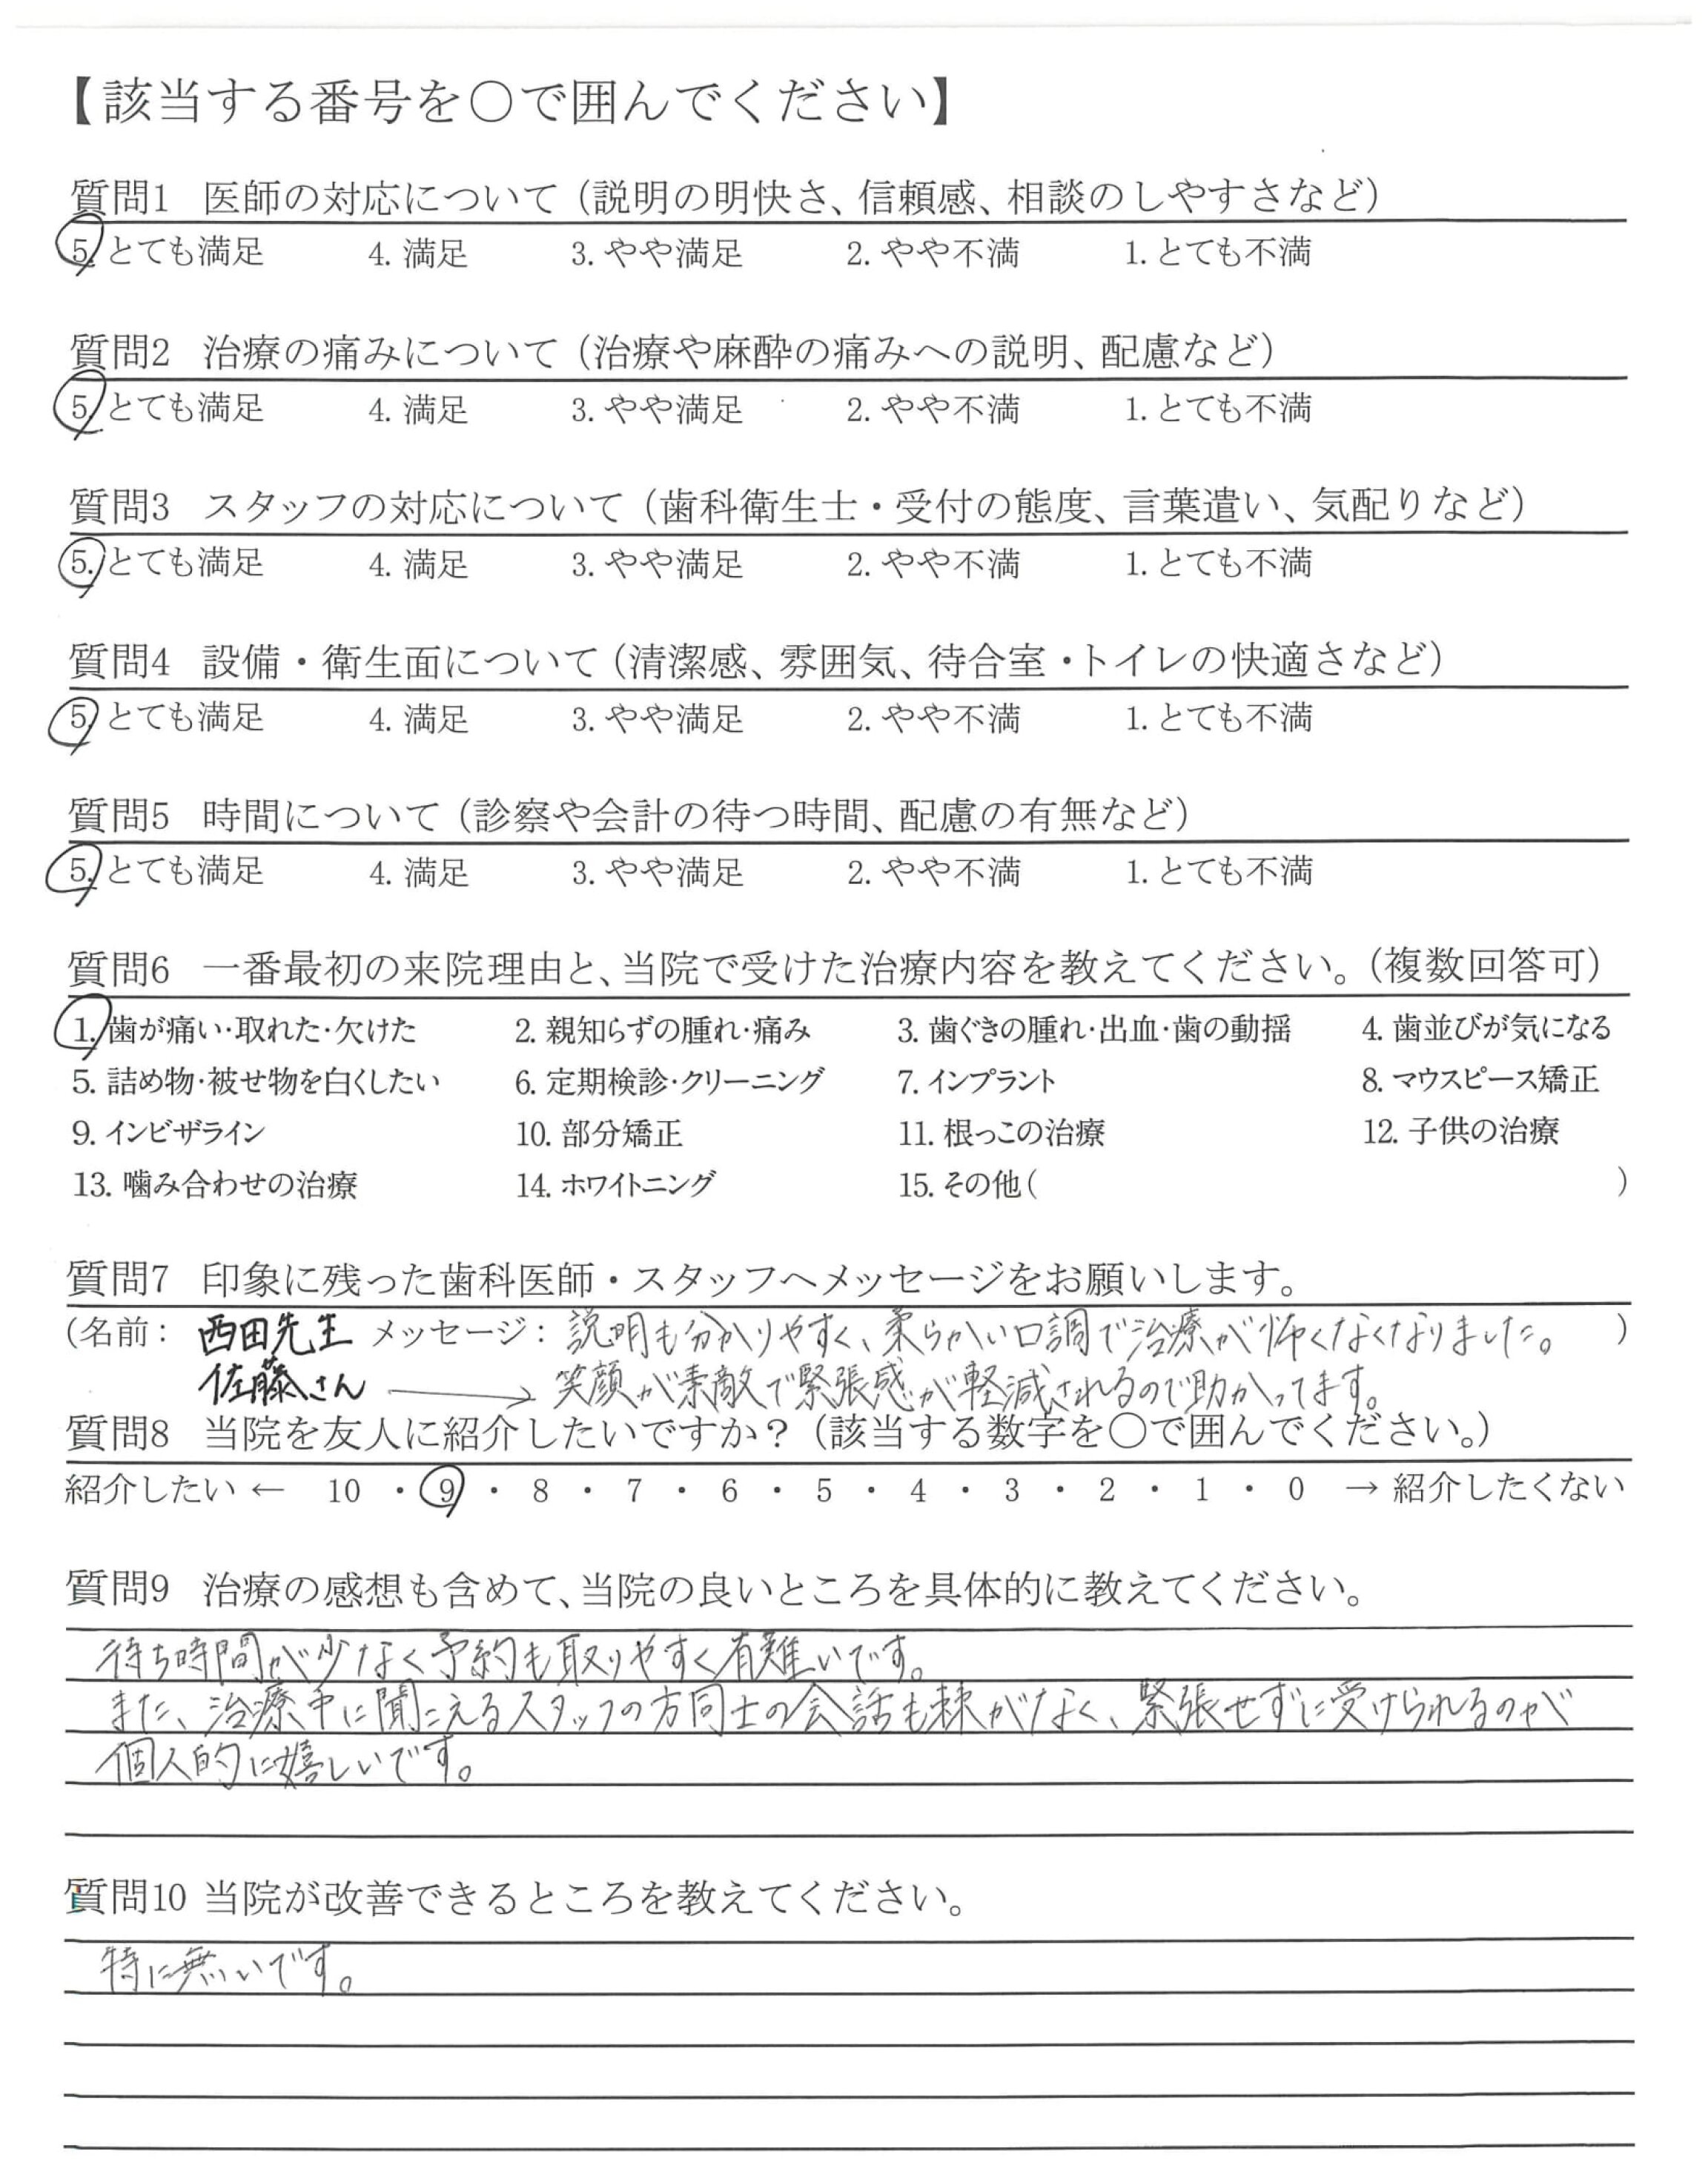 【該当する番号を○で囲んでください】
質問1 医師の対応について（説明の明快さ、信頼感、相談のしやすさなど）
5. とても満足 4. 満足 3. やや満足 2. やや不満 1. とても不満
質問2 治療の痛みについて（治療や麻酔の痛みへの説明、配慮など）
5. とても満足 4. 満足 3. やや満足 2. やや不満 1. とても不満
質問3 スタッフの対応について（歯科衛生士・受付の態度、言葉遣い、気配りなど）
5. とても満足 4. 満足 3. やや満足 2. やや不満 1. とても不満
質問4 設備・衛生面について（清潔感、雰囲気、待合室・トイレの快適さなど）
5. とても満足 4. 満足 3. やや満足 2. やや不満 1. とても不満
質問5 時間について（診察や会計の待つ時間、配慮の有無など）
5. とても満足 4. 満足 3. やや満足 2. やや不満 1. とても不満
質問6 一番最初の来院理由と、当院で受けた治療内容を教えてください。（複数回答可）
1. 歯が痛い・取れた・欠けた 2. 親知らずの腫れ・痛み 3. 歯ぐきの腫れ・出血・歯の動揺 4. 歯並びが気になる
5. 詰め物・被せ物を白くしたい 6. 定期検診・クリーニング 7. インプラント 8. マウスピース矯正
9. インビザライン 10. 部分矯正 11. 根っこの治療 12. 子供の治療
13. 噛み合わせの治療 14. ホワイトニング 15. その他（ ）
質問7 印象に残った歯科医師・スタッフへメッセージをお願いします。
（名前： 西田先生 メッセージ： 説明も分かりやすく、柔らかい口調で治療が怖くなくなりました。 ）
佐藤さん → 笑顔が素敵で緊張感が軽減されるので助かってます。
質問8 当院を友人に紹介したいですか？（該当する数字を○で囲んでください。）
紹介したい ← 10 ・ 9 ・ 8 ・ 7 ・ 6 ・ 5 ・ 4 ・ 3 ・ 2 ・ 1 ・ 0 → 紹介したくない
質問9 治療の感想も含めて、当院の良いところを具体的に教えてください。
待ち時間が少なく予約も取りやすく有難いです。
また、治療中に聞こえるスタッフの方同士の会話も棘がなく、緊張せずに受けられるのが
個人的に嬉しいです。
質問10 当院が改善できるところを教えてください。
特に無いです。